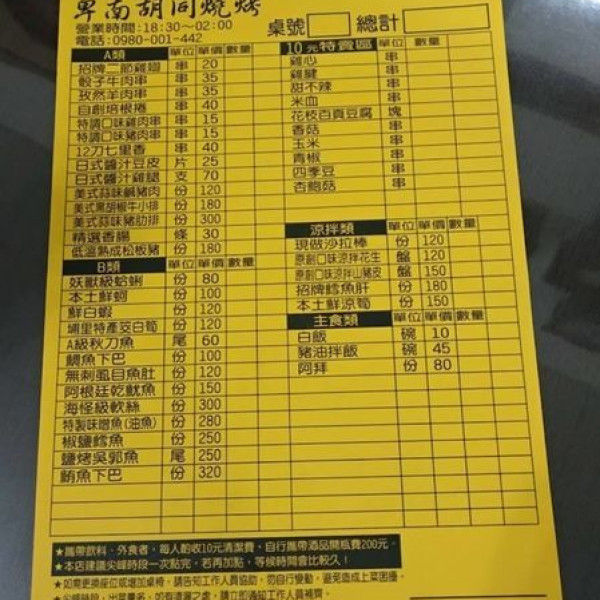 卑南胡同燒烤
營業時間:18:30～02:00
電話:0980-001-442
桌號 總計
A類 單位 單價 數量
招牌二節雞翅 串 20
骰子牛肉串 串 35
孜然羊肉串 串 35
自創培根捲 串 40
特調口味雞肉串 串 15
特調口味豬肉串 串 15
12刀七里香 串 40
日式醬汁豆皮 片 25
日式醬汁雞腿 支 70
美式蒜味鹹豬肉 份 120
美式黑胡椒牛小排 份 180
美式蒜味豬肋排 份 300
精選香腸 條 30
低溫熟成松板豬 份 180
B類 單位 單價 數量
妖獸級蛤蜊 份 80
本土鮮蚵 份 100
鮮白蝦 份 120
埔里特產茭白筍 份 120
A級秋刀魚 尾 60
鯛魚下巴 份 100
無刺虱目魚肚 份 120
阿根廷乾魷魚 份 150
海怪級軟絲 份 300
特製味噌魚(油魚) 份 280
椒鹽鱈魚 份 250
鹽烤吳郭魚 尾 250
鮪魚下巴 份 320
10元特賣區 單位 數量
雞心 串
雞腱 串
甜不辣 串
米血 串
花枝百頁豆腐 塊
香菇 串
玉米 串
青椒 串
四季豆 串
杏鮑菇 串
涼拌類 單位 單價 數量
現做沙拉棒 份 120
原創口味涼拌花生 盤 120
原創口味涼拌山豬皮 盤 150
招牌鱈魚肝 份 180
本土鮮涼筍 份 150
主食類 單位 單價 數量
白飯 碗 10
豬油拌飯 碗 45
阿拜 份 80
★攜帶飲料、外食者，每人酌收10元清潔費，自行攜帶酒品開瓶費200元。
★本店建議尖峰時段一次點完，若再加點，等候時間會比較久！
★如需更換座位或增加桌椅，請告知工作人員協助，勿自行變動，避免造成上菜困擾。
★尖峰時段，出菜量多，如有遺漏之處，請立即通知工作人員補齊。